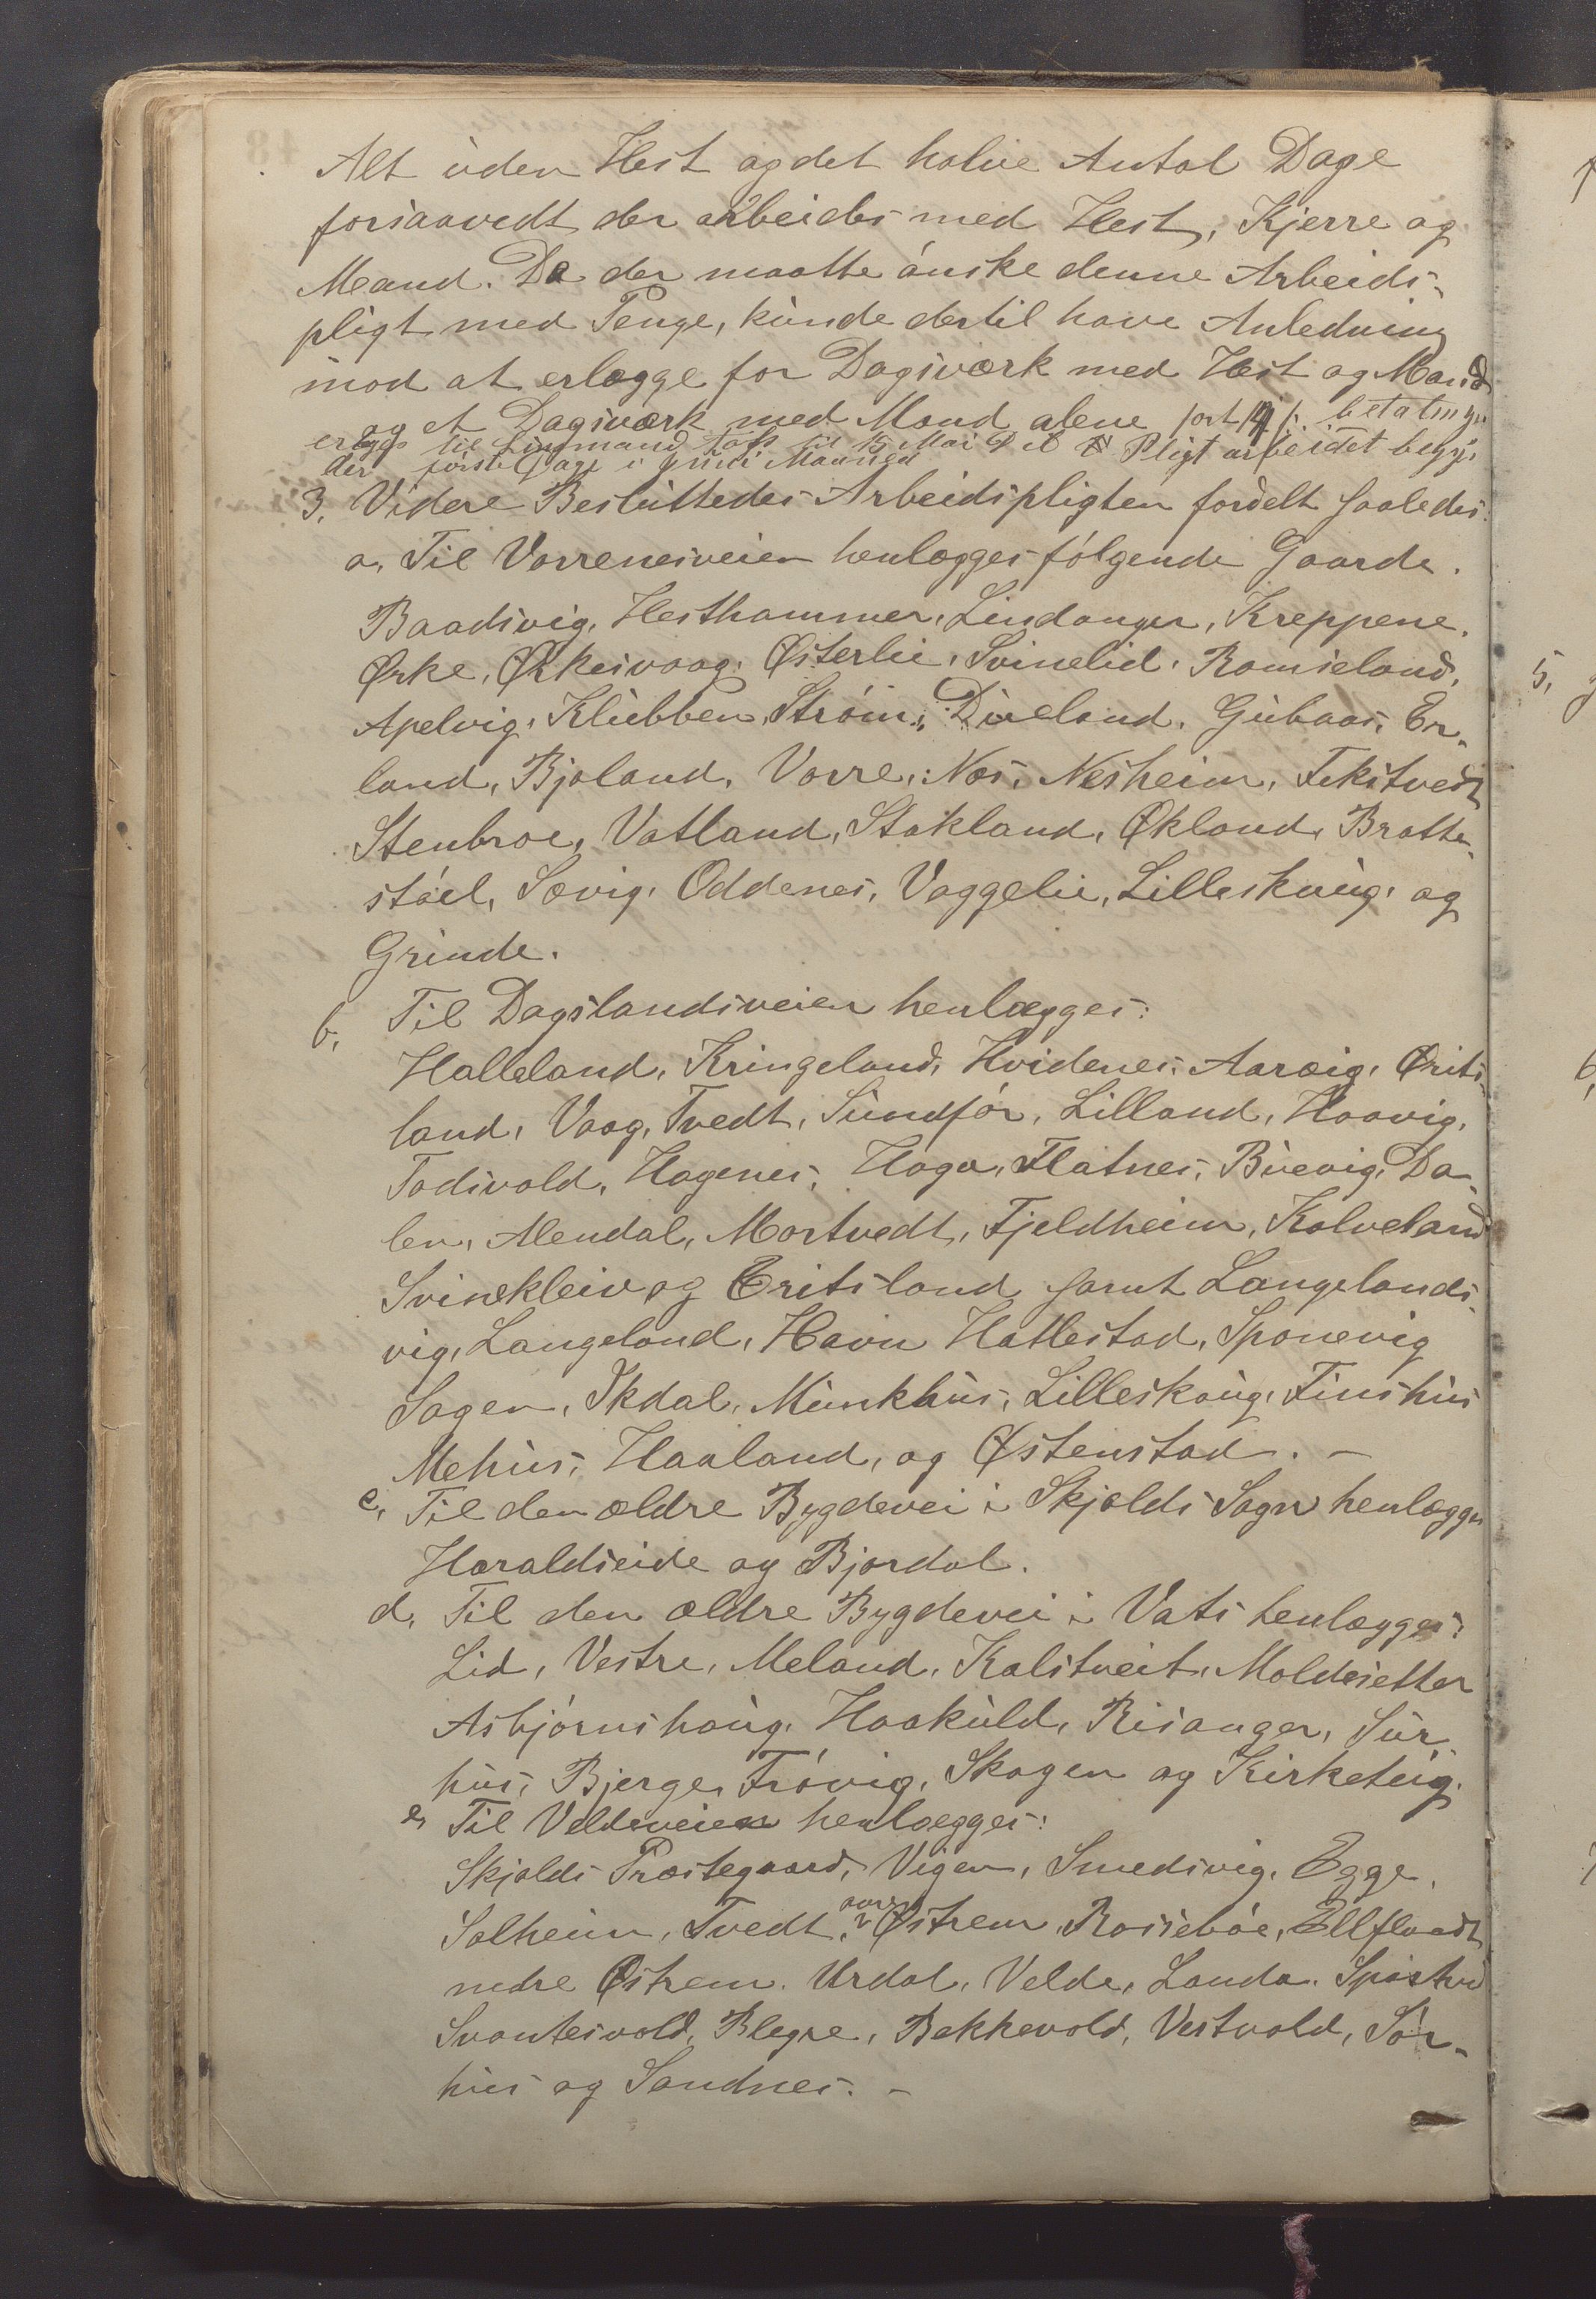 Alt uden Hest og det halve Antal Dage
forsaavedt der arbeides med Hest, Kjerre og
Mand. De der maatte ønske denne Arbeids-
pligt med Penge, kunde dertil have Anledning
mod at erlægge for Dagsværk med Hest og Mand
og et Dagsværk med Mand alene betalingen
erlægges til Linsmand Høts til 15 Mai Det Pligt arbeidet begyn
der første Dage i Juni Maaned
3. Videre Besluttedes Arbeidspligten fordelt saaledes:
a. Til Vorrenesveien henlægges følgende Gaarde.
Baadsvig, Hesthammer, Lindanger, Kreppene,
Ørke, Ørkesvaag, Østerlie, Svinelid, Ramseland,
Apelvig, Klubben, Strøm, Dueland, Gubaas, Er-
land, Bjoland, Vorre, Næs, Nesheim, Fekstvedt
Stenbroe, Vatland, Stakland, Økland, Bratte-
støel, Sævig, Oddenes, Vaggelie, Lilleskoug og
Grinde.
b. Til Dagslandsveien henlægges:
Halleland, Kringeland, Hvidenes, Aarvig, Ørits-
land, Vaag, Tvedt, Sundfør, Lilland, Haavig,
Todsvold, Hagenes, Haga, Flatnes, Buevig, Da-
len, Alendal, Mortvedt, Fjeldheim, Kolveland
Svinekleiv og Eritsland samt Langelands-
vig, Langeland, Havn Hatlestad, Sponevig
Sagen, Ikdal, Munkhus, Lilleskoug, Finshus
Mehus, Haaland, og Østenstad. -
c. Til den ældre Bygdevei i Skjolds Sogn henlægges
Haraldseide og Bjordal.
d. Til den ældre Bygdevei i Vats henlægges:
Lid, Vestre, Meland, Kalstveit, Moldesetter
Asbjørnshoug, Haakuld, Risanger, Sør-
hus, Bjerge, Frøvig, Skogen og Kirketeig.
e. Til Veldeveien henlægges:
Skjolds Præstegaard, Vigen, Smedsvig, Egge,
øvre
Solheim, Tvedt, Østrem, Rossebøe, Ellflaadt
nedre Østrem. Urdal, Velde, Landa,
Svantesvold, Blegre, Bekkevold, Vestvold, Sør-
hus og Sandnes. -